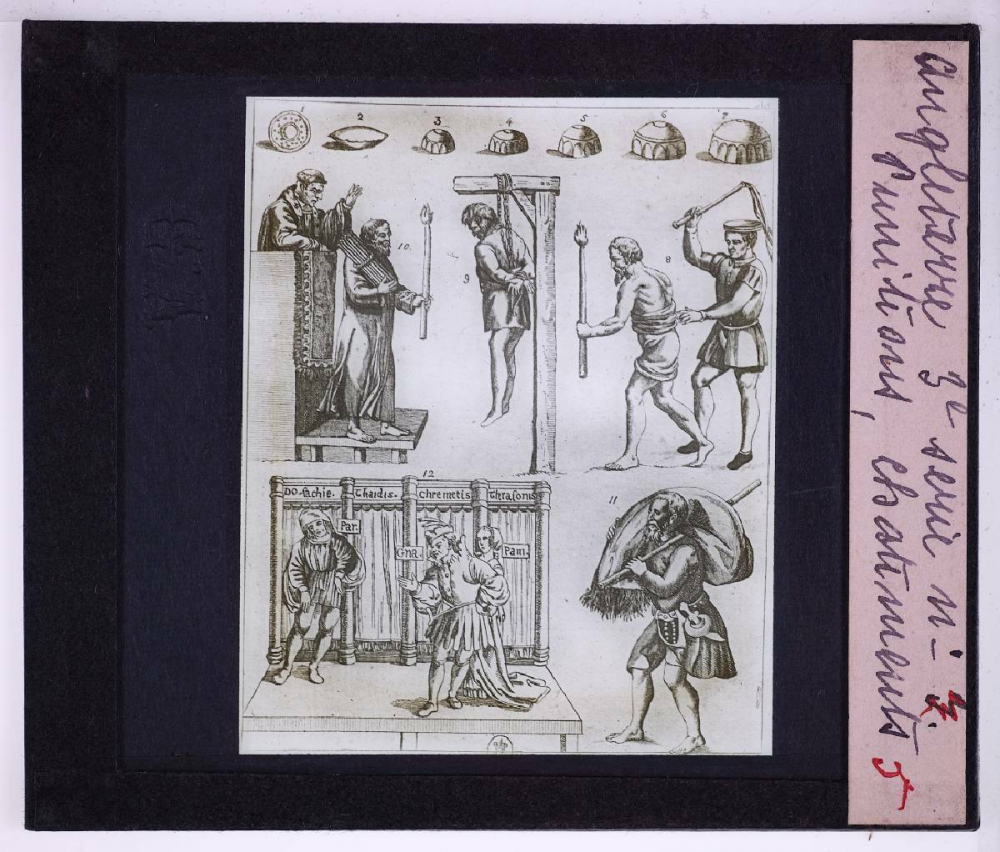 1 2 3 4 5 6 7
10
9
8
12
DO. sachie. Thaidis. Chremetis Thrasonis
Par.
Gna. Pam.
11
angleterre 3e serie n-
Punitions, chatiments 5